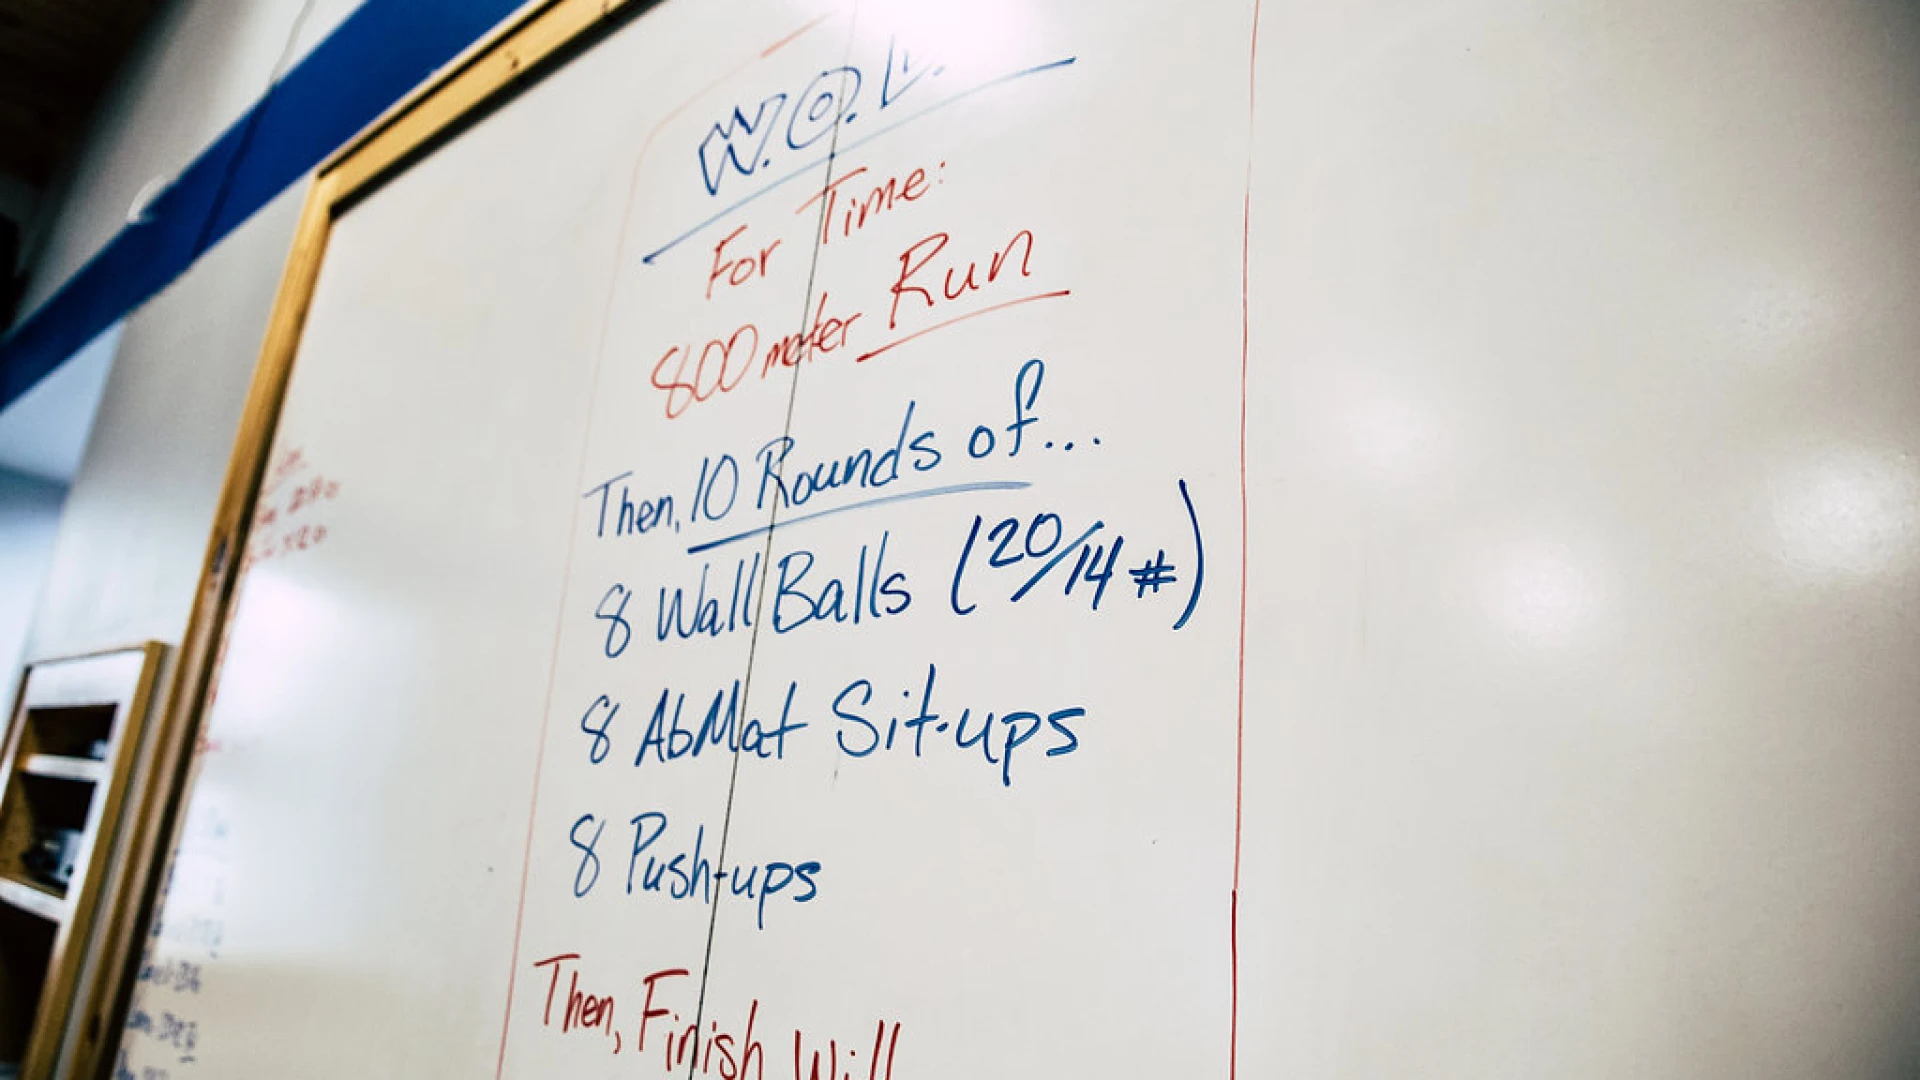 W.O.D.
For Time:
800 meter Run
Then, 10 Rounds of...
8 Wall Balls (20/14#)
8 AbMat Sit-ups
8 Push-ups
Then, Finish Will